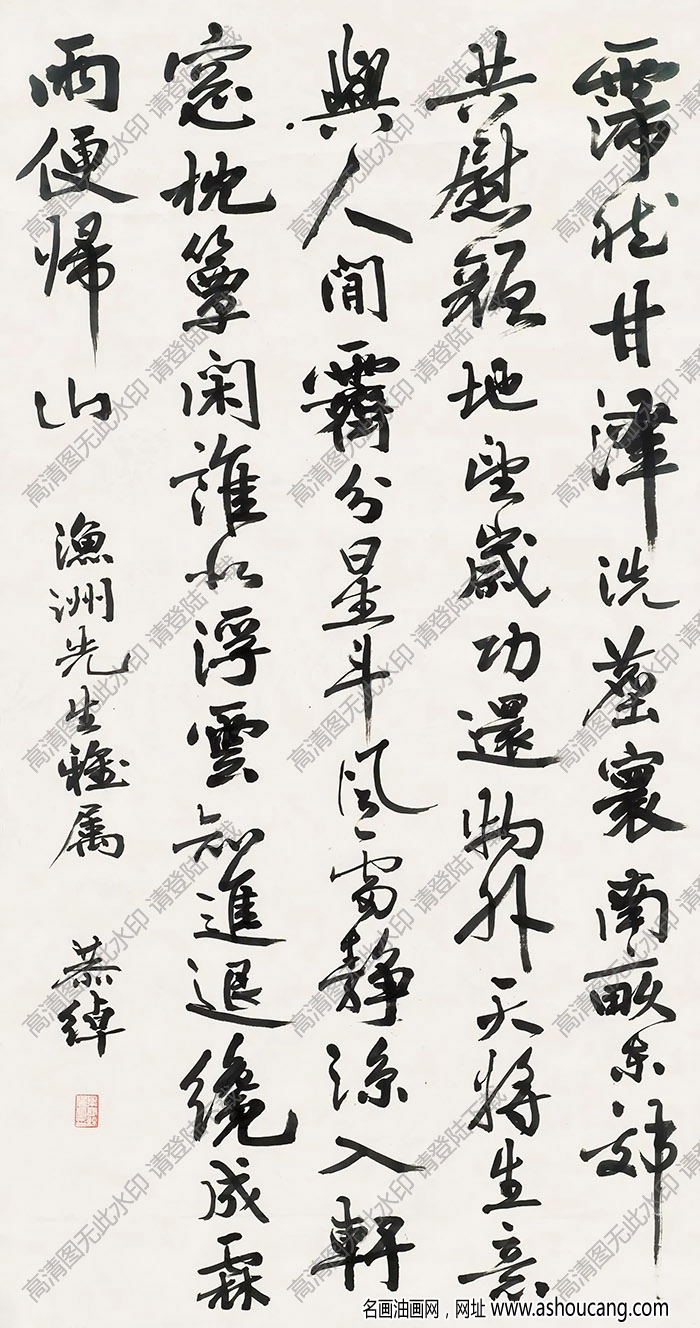 霈然甘澤洗塵寰南畝東郊
共慰顏地望歲功還物外天將生意
與人間霽分星斗風雷靜涼入軒
窓枕簟閑誰似浮雲知進退纔成霖
雨便帰山
漁洲先生雅属
恭綽
名画油画网，网址 www.ashoucang.com
高清图无此水印 请登陆下载